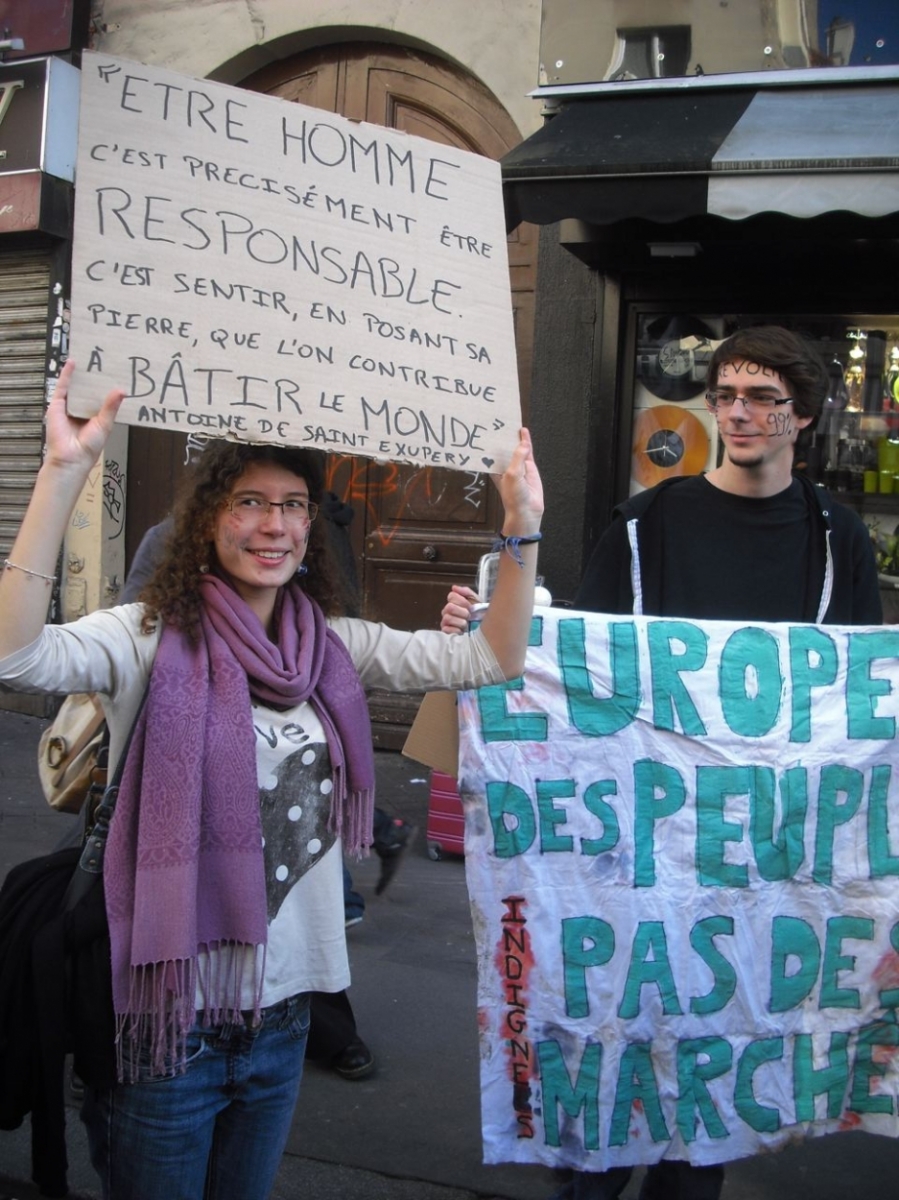 "ETRE HOMME
C'EST PRECISÉMENT ÊTRE
RESPONSABLE.
C'EST SENTIR, EN POSANT SA
PIERRE, QUE L'ON CONTRIBUE
À BÂTIR LE MONDE"
ANTOINE DE SAINT EXUPERY
EUROPE
DES PEUPL
PAS DES
MARCHE
INDIGNEES
99%
ve